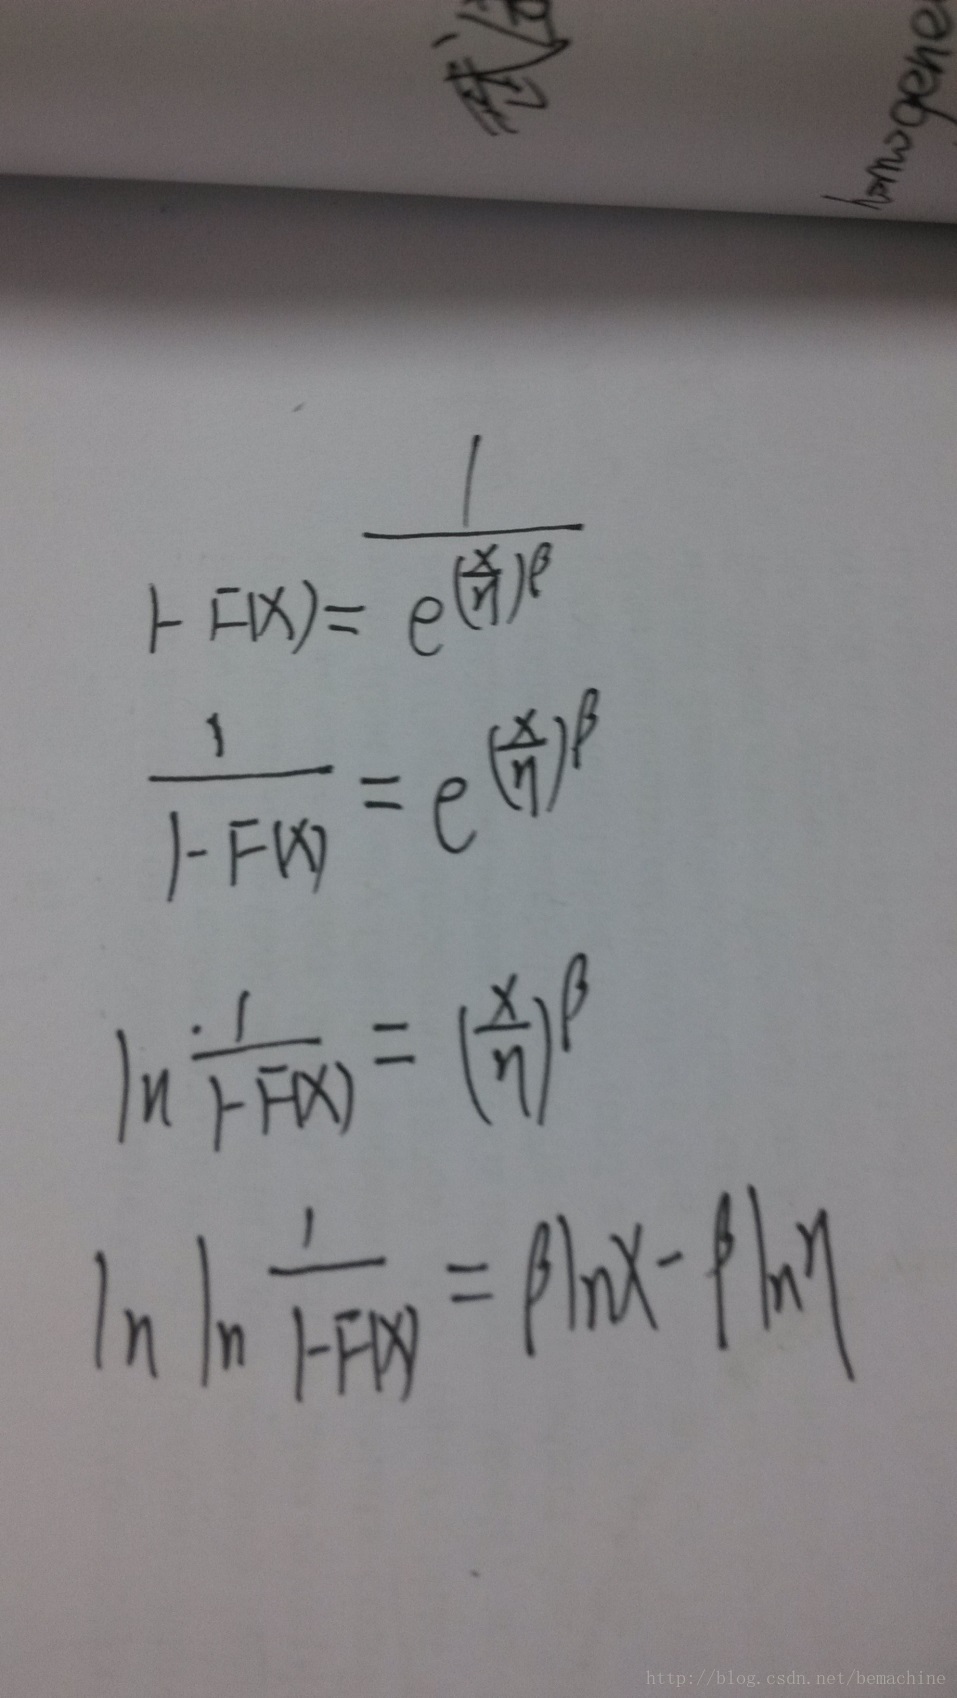 homogene
1 - F(x) = 1 / e^(x/η)^β
1 / (1 - F(x)) = e^(x/η)^β
ln 1 / (1 - F(x)) = (x/η)^β
ln ln 1 / (1 - F(x)) = β ln x - β ln η
http://blog.csdn.net/bemachine